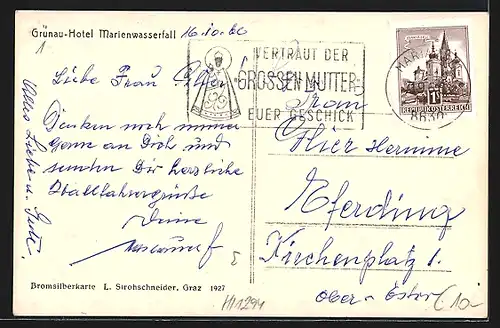 Grünau-Hotel Marienwasserfall
16.10.60
1
Liebe Frau
Denken noch immer
Gerne an Dich und
senden Dir herzliche
Wallfahrergrüße
Deine
Alles Liebe u. Gute.
VERTRAUT DER
GROSSEN MUTTER
EUER GESCHICK
MARIA
8630
REPUBLIK ÖSTERREICH
Frau
Hier Hermine
Eferding
Kirchenplatz 1.
Ober-Österr.
Bromsilberkarte L. Strohschneider, Graz 1927